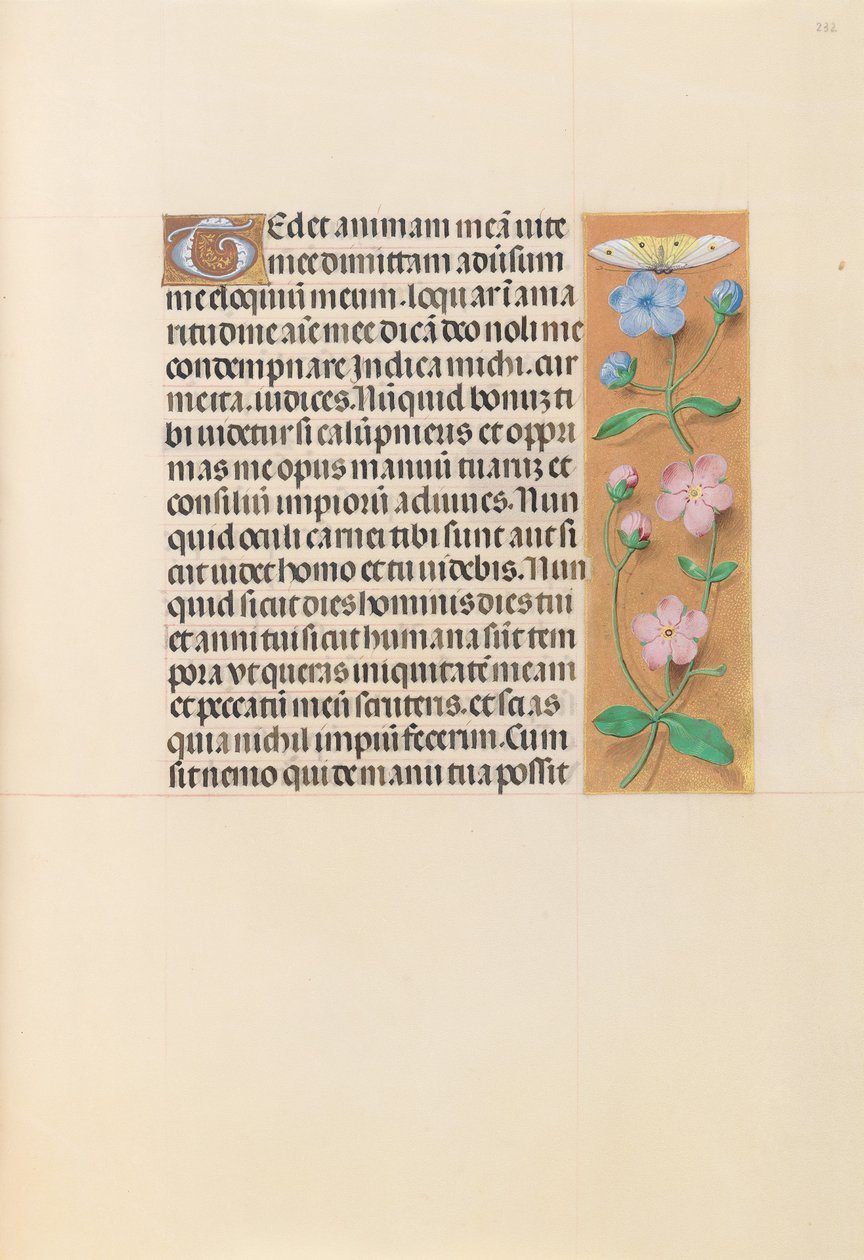 232
TEdet animam meā uite
mee dimittam adūsum
me eloquiū meum . loquar ī ama
ritudine aīe mee dicā deo noli me
condempnare Indica michi . cur
me ita . iudices . Nūquid bonuꝫ ti
bi uidetur si calūpnieris et oppri
mas me opus manuū tuaruꝫ et
consiliū impiorū adiuues . Nun
quid oculi carnei tibi sunt aut si
cut uidet homo et tu uidebis . Nun
quid sicut dies hominis dies tui
et anni tui sicut humana sūt tem
pora vt queras iniquitatē meam
et peccatū meū scruteris . et scias
quia nichil impiū fecerim . Cum
sit nemo qui de manu tua possit